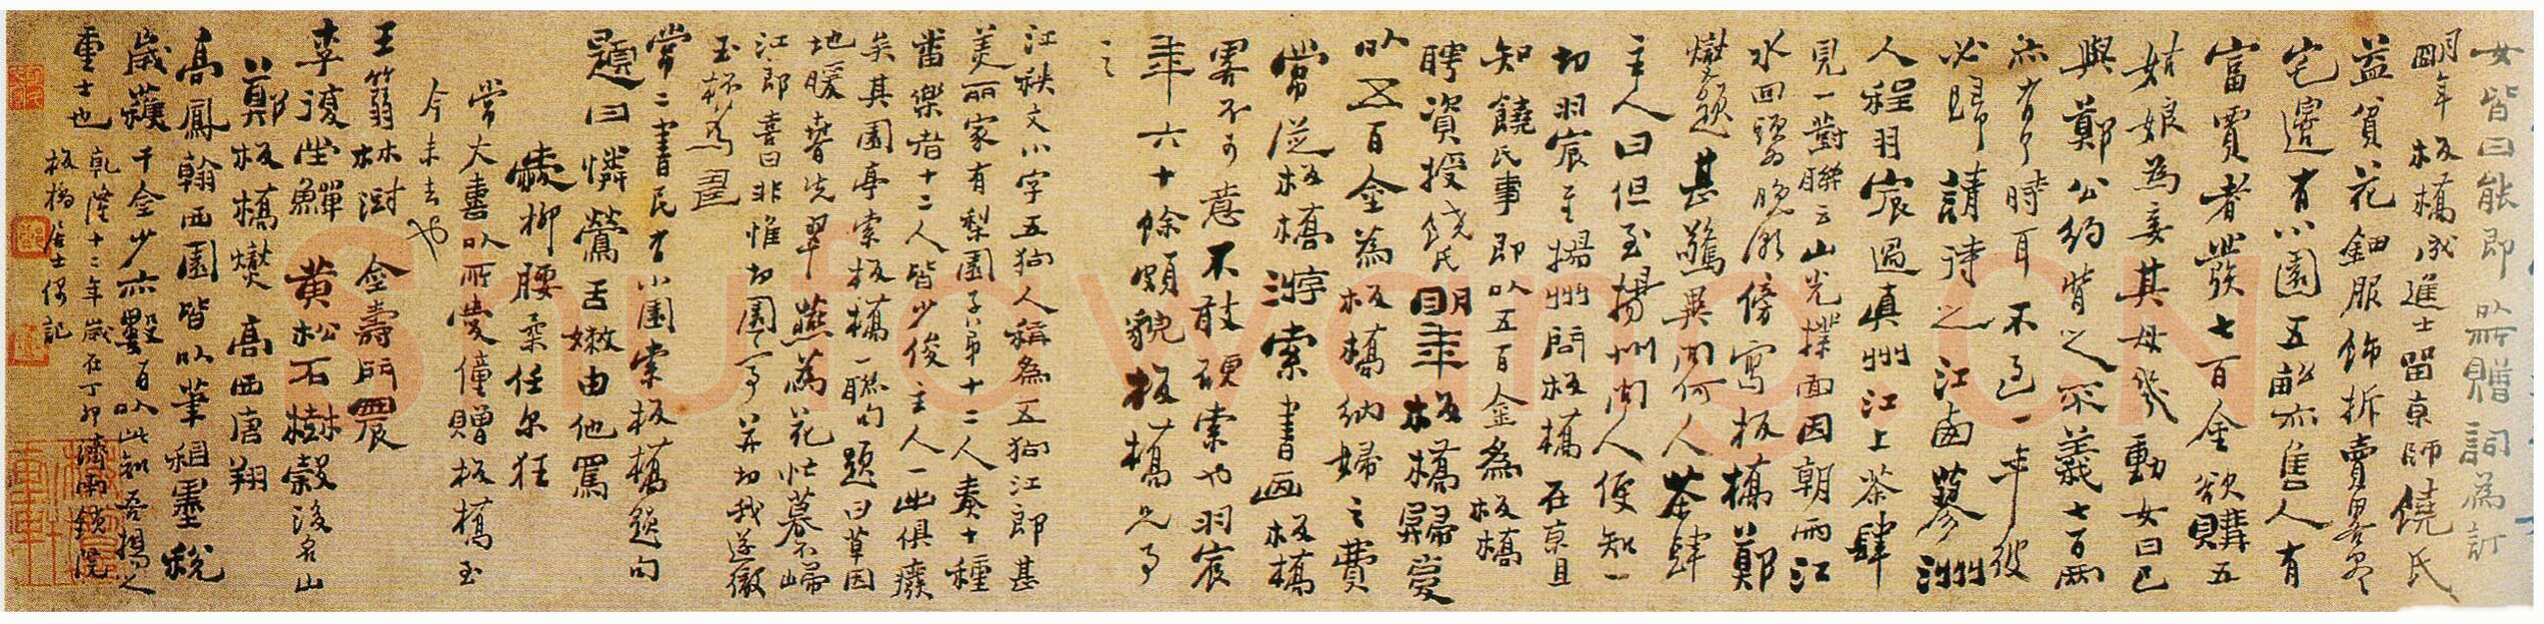 女皆曰能即以所贈詞為訂
明年板橋成進士留京師饒氏
益貧花鈿服飾拆賣略盡
宅邊有小園五畝亦售人有
富賈者發七百金欲購五
姑娘為妾其母幾動女曰已
與鄭公約背之不義七百兩
亦有了時耳不過一年彼
必歸請待之江西蓼洲
人程羽宸過真州江上茶肆
見一對聯云山光撲面因朝雨江
水回頭為晚潮傍寫板橋鄭
燮題甚驚異問何人茶肆
主人曰但至揚州問人便知一
切羽宸至揚州問板橋在京且
知饒氏事即以五百金為板橋
聘資授饒氏明年板橋歸爰
以五百金為板橋納婦之費
常從板橋游索書画板橋
略不可意不敢硬索也羽宸
年六十餘頗貌板橋兄事
之
江秩文小字五狗人稱為五狗江郎甚
美丽家有梨園子弟十二人奏十種
番樂者十二人皆少俊主人一出俱癈
矣其園亭索板橋一聯句題曰草因
地暖春先翠燕為花忙暮不歸
江郎喜曰非惟切園亭并切我遂徹
玉杯為壽
常二書民有小園索板橋題句
題曰憐鶯舌嫩由他罵
愛柳腰柔任尔狂
常大喜以所愛僮贈板橋至
今未去也
王篛林澍 金壽門農
李復堂鱓 黃松石樹穀後名山
鄭板橋燮 高西唐翔
高鳳翰西園皆以筆租墨稅
歲獲千金少亦數百以此知吾揚之
重士也 乾隆十二年歲在丁卯濟南鎖院
板橋居士偶記
Shufawang.CN